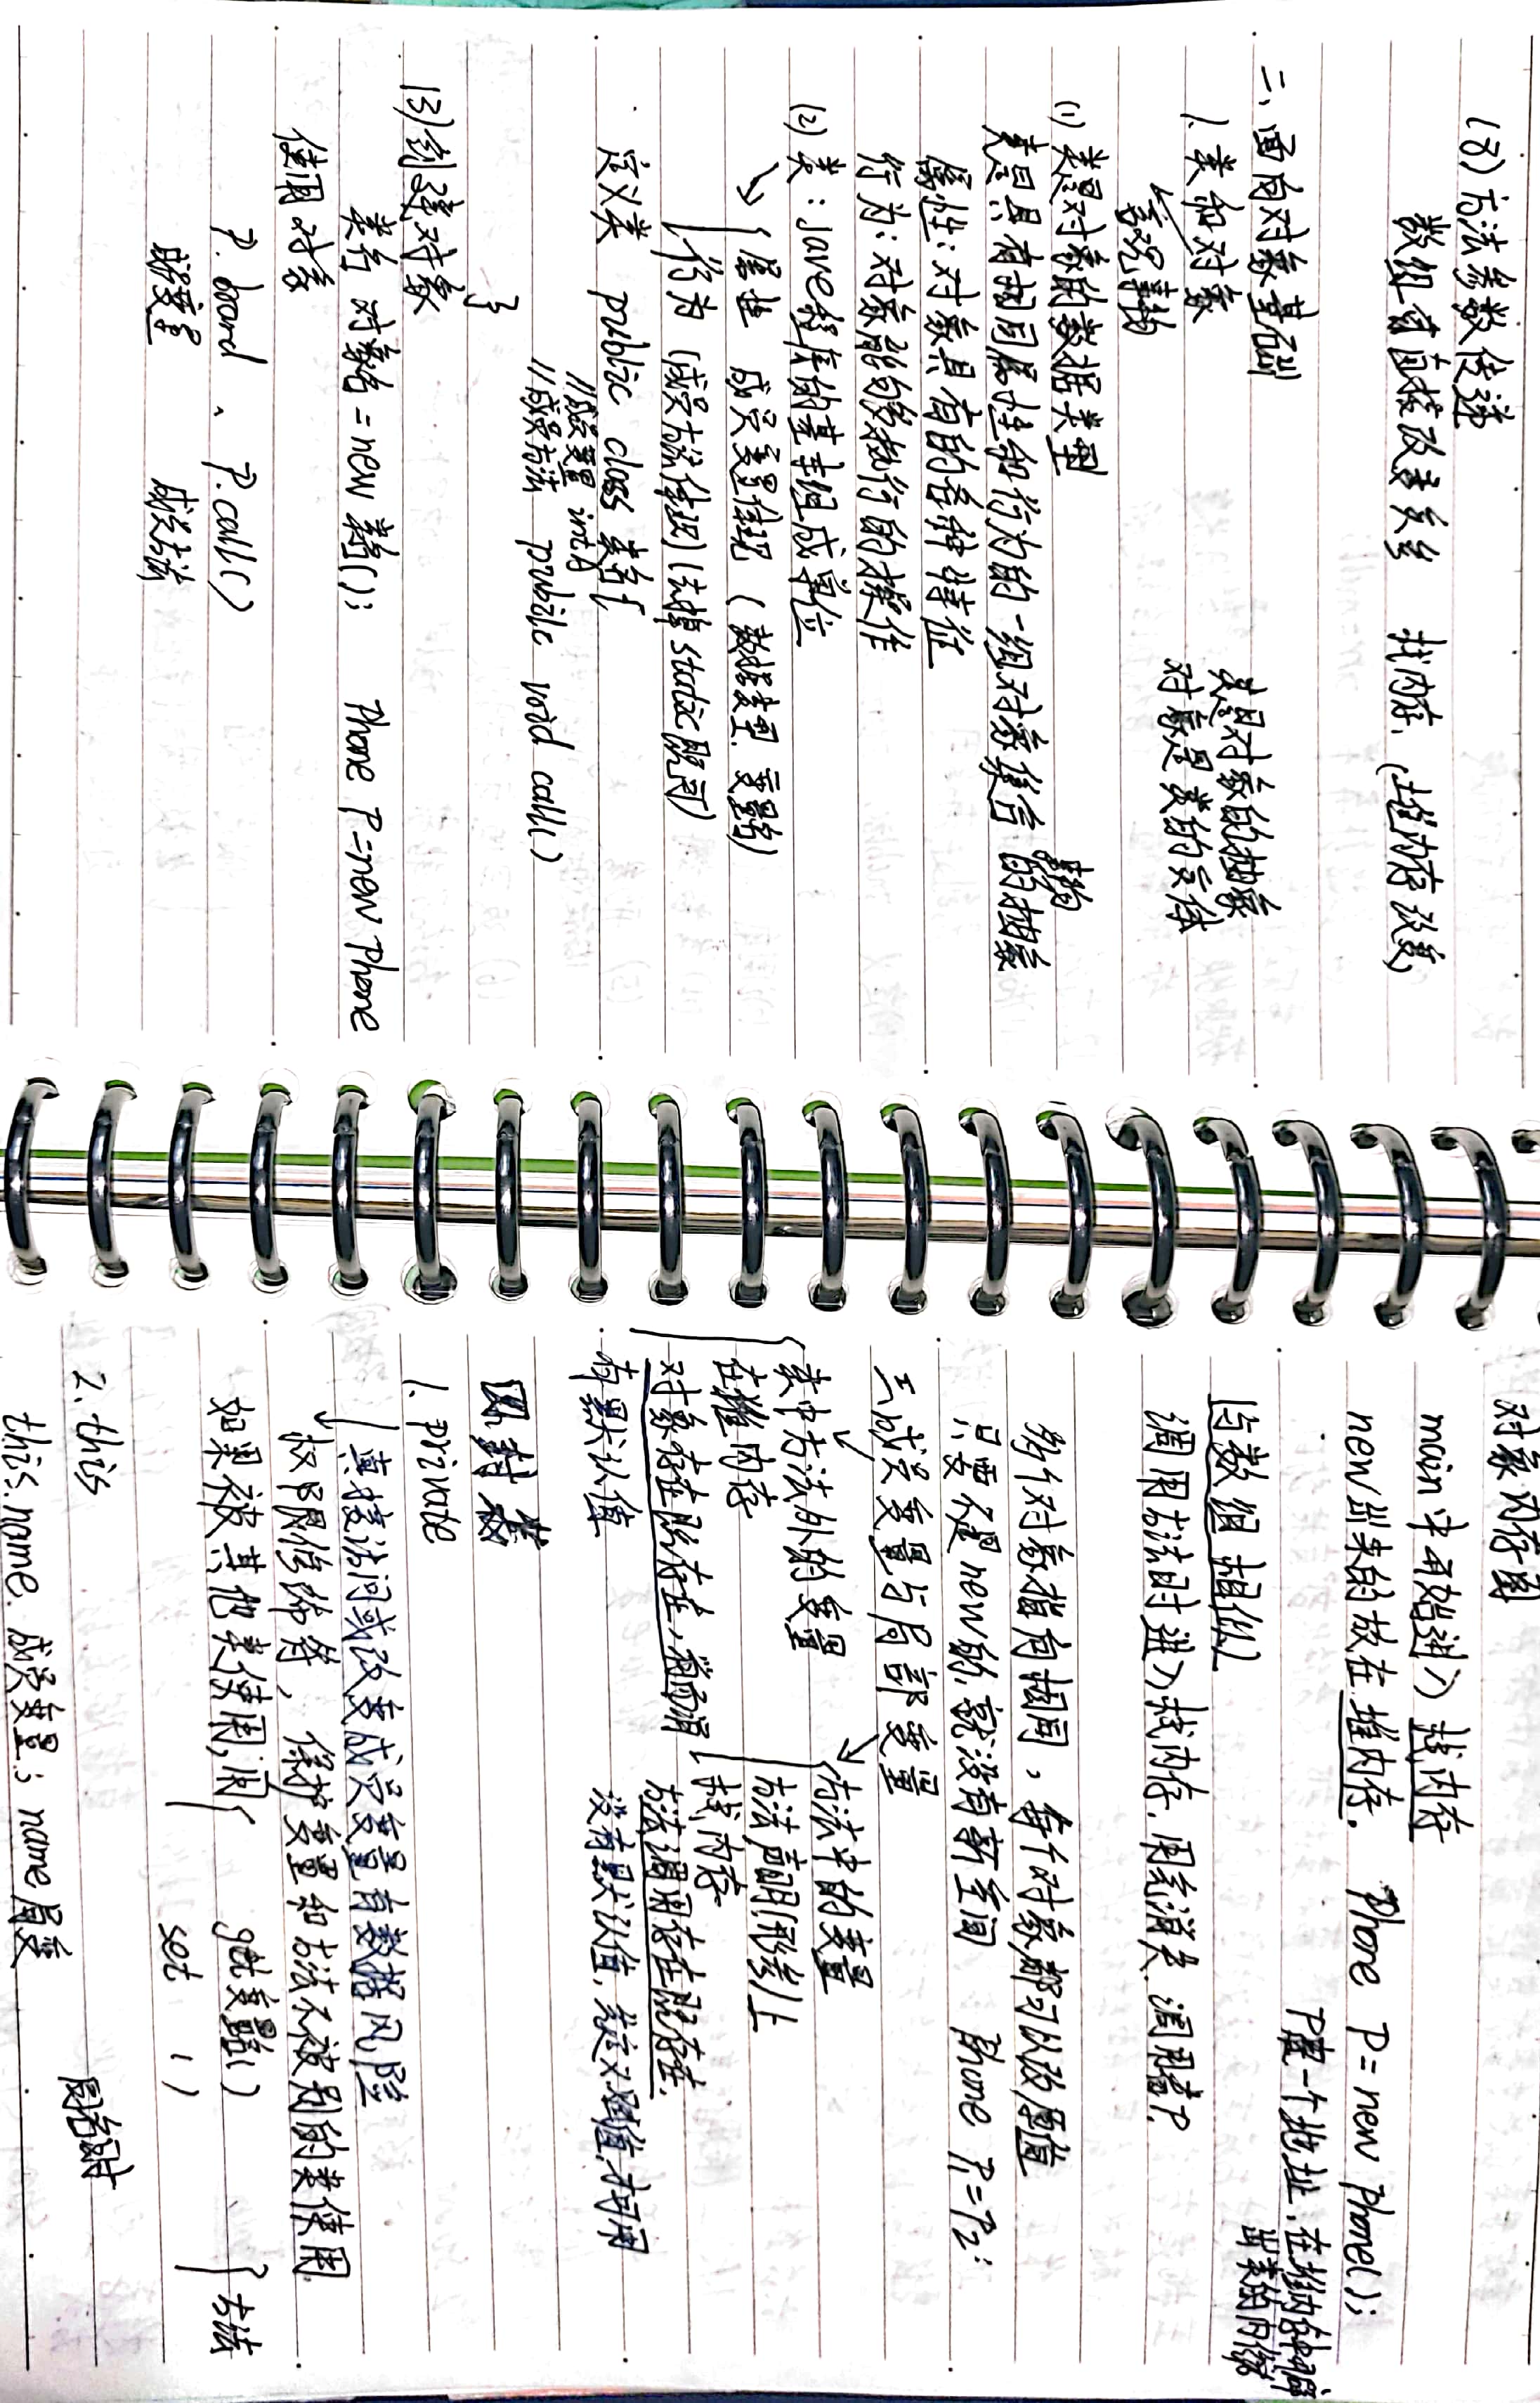 (8) 方法参数传递
数组有直接改变关系 栈内存. (堆内存改变)
二、面向对象基础
1. 类和对象
客观事物
类是对象的抽象
对象是类的实体
(1) 类是对象的数据类型
类是具有相同属性和行为的一组对象集合 事物的抽象
属性: 对象具有的各种特征
行为: 对象能够执行的操作
(2) 类: Jave程序的基本组成单位
属性 成员变量体现 (数据类型. 变量名)
行为 (成员方法体现) (去掉static既可)
定义类 public class 类名{
//成员变量 int A
//成员方法 pubilc void call()
}
(3) 创建对象
类名 对象名 = new 类名(); Phone P=new Phone
使用对象
P. brand 、 P.call()
成员变量 成员方法
对象内存图
main中开始进入 栈内存
new出来的放在 堆内存. Phone P = new Phone();
P是一个地址, 在堆内存中开辟
出类的内存
与数组相似
调用方法时进入栈内存. 用完消失. 调用者P.
多个对象指向相同, 每个对象都可以改原值
只要不是new的, 就没有新空间 Phone P1=P2;
三.成员变量与局部变量
类中方法外的变量
在堆内存
对象存在既存在, 消而消
有默认值
方法中的变量
方法声明(形参)上
栈内存
方法调用存在既存在.
没有默认值, 先定义赋值,才可用
四.封装
1. private
真接访问或改变成员变量有数据风险
权限修饰符, 保护变量和方法不被别的类使用.
如果被其他类使用, 用{ get变量名()
set ()
} 方法
2. this
同名时
this.name. 成员变量; name局变